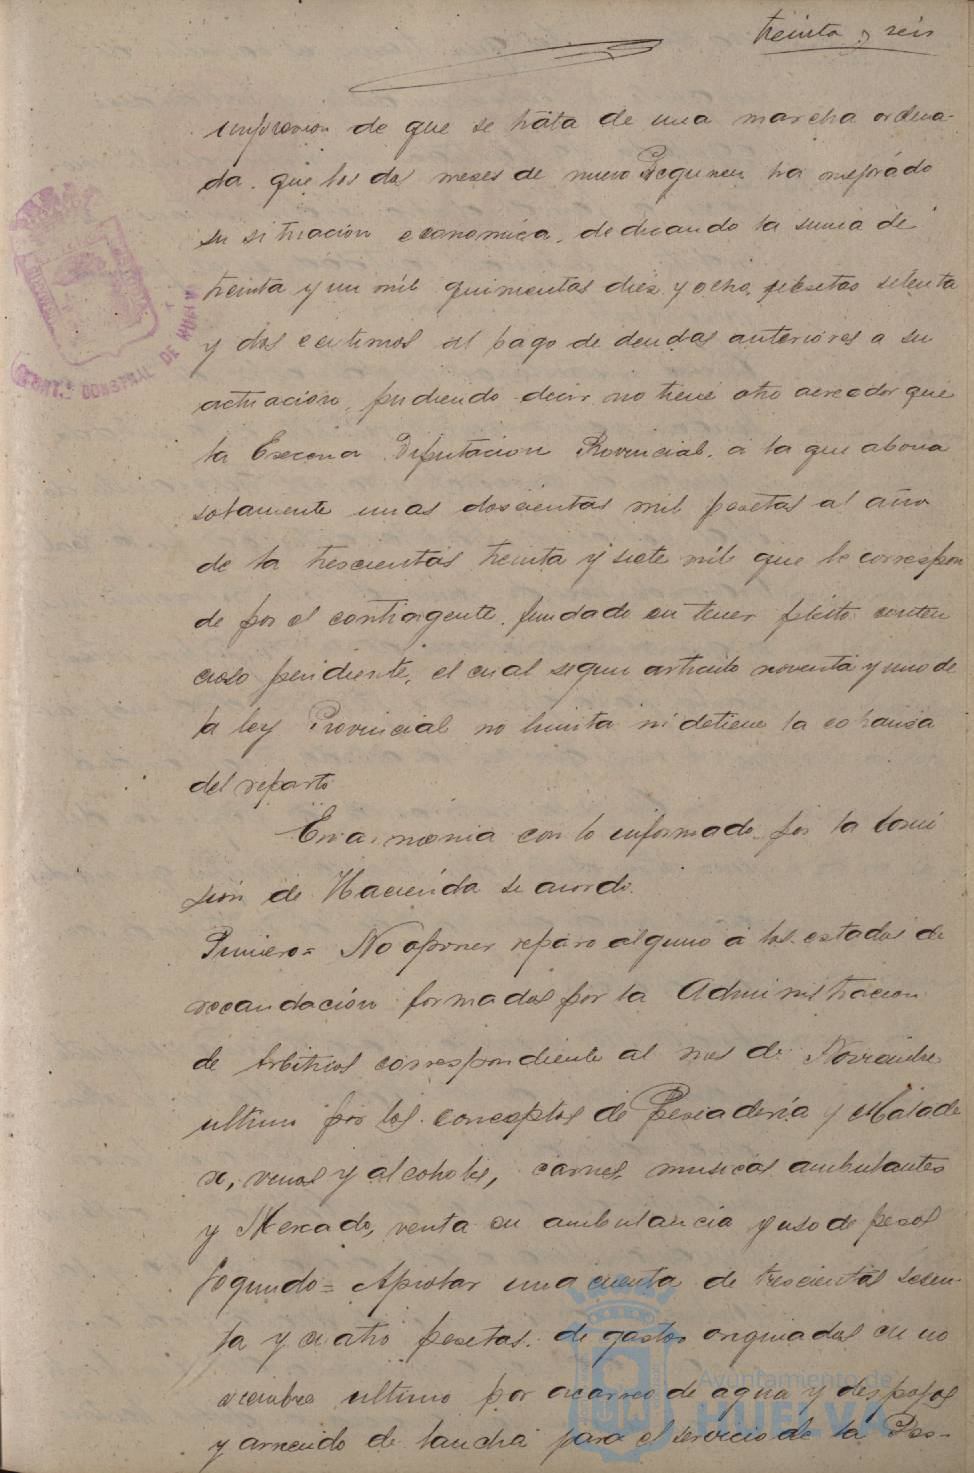 treinta y seis
impresion de que se trata de una marcha ordena-
da. que los dos meses de nuevo Regimen ha mejorado
su situacion economica, dedicando la suma de
treinta y un mil quinientas diez y ocho pesetas setenta
y dos centimos al pago de deudas anteriores a su
actuacion, pudiendo decir no tiene otro acreedor que
la Excma Diputacion Provincial. a la que abona
solamente unas doscientas mil pesetas al año
de la trescientas treinta y siete mil que le correspon
de por el contingente, fundado en tener pleito conten
cioso pendiente, el cual segun articulo noventa y uno de
la ley Provincial no limita ni detiene la cobranza
del reparto
En armonia con lo informado por la Comi
sion de Hacienda se acordó.
Primero= No oponer reparo alguno á los estados de
recaudación formados por la Administracion
de Arbitrios correspondiente al mes de Noviembre
ultimo por los conceptos de Pescaderia y Matade
ro, vinos y alcoholes, carnes, musicas ambulantes
y Mercado, venta en ambulancia y uso de pesos
Segundo= Aprobar una cuenta de trescientas sesen-
ta y cuatro pesetas. de gastos originados en no
viembre ultimo por acarreo de agua y despojos
y arriendo de lancha para el servicio de la Pes-
Ayuntamiento de
HUELVA